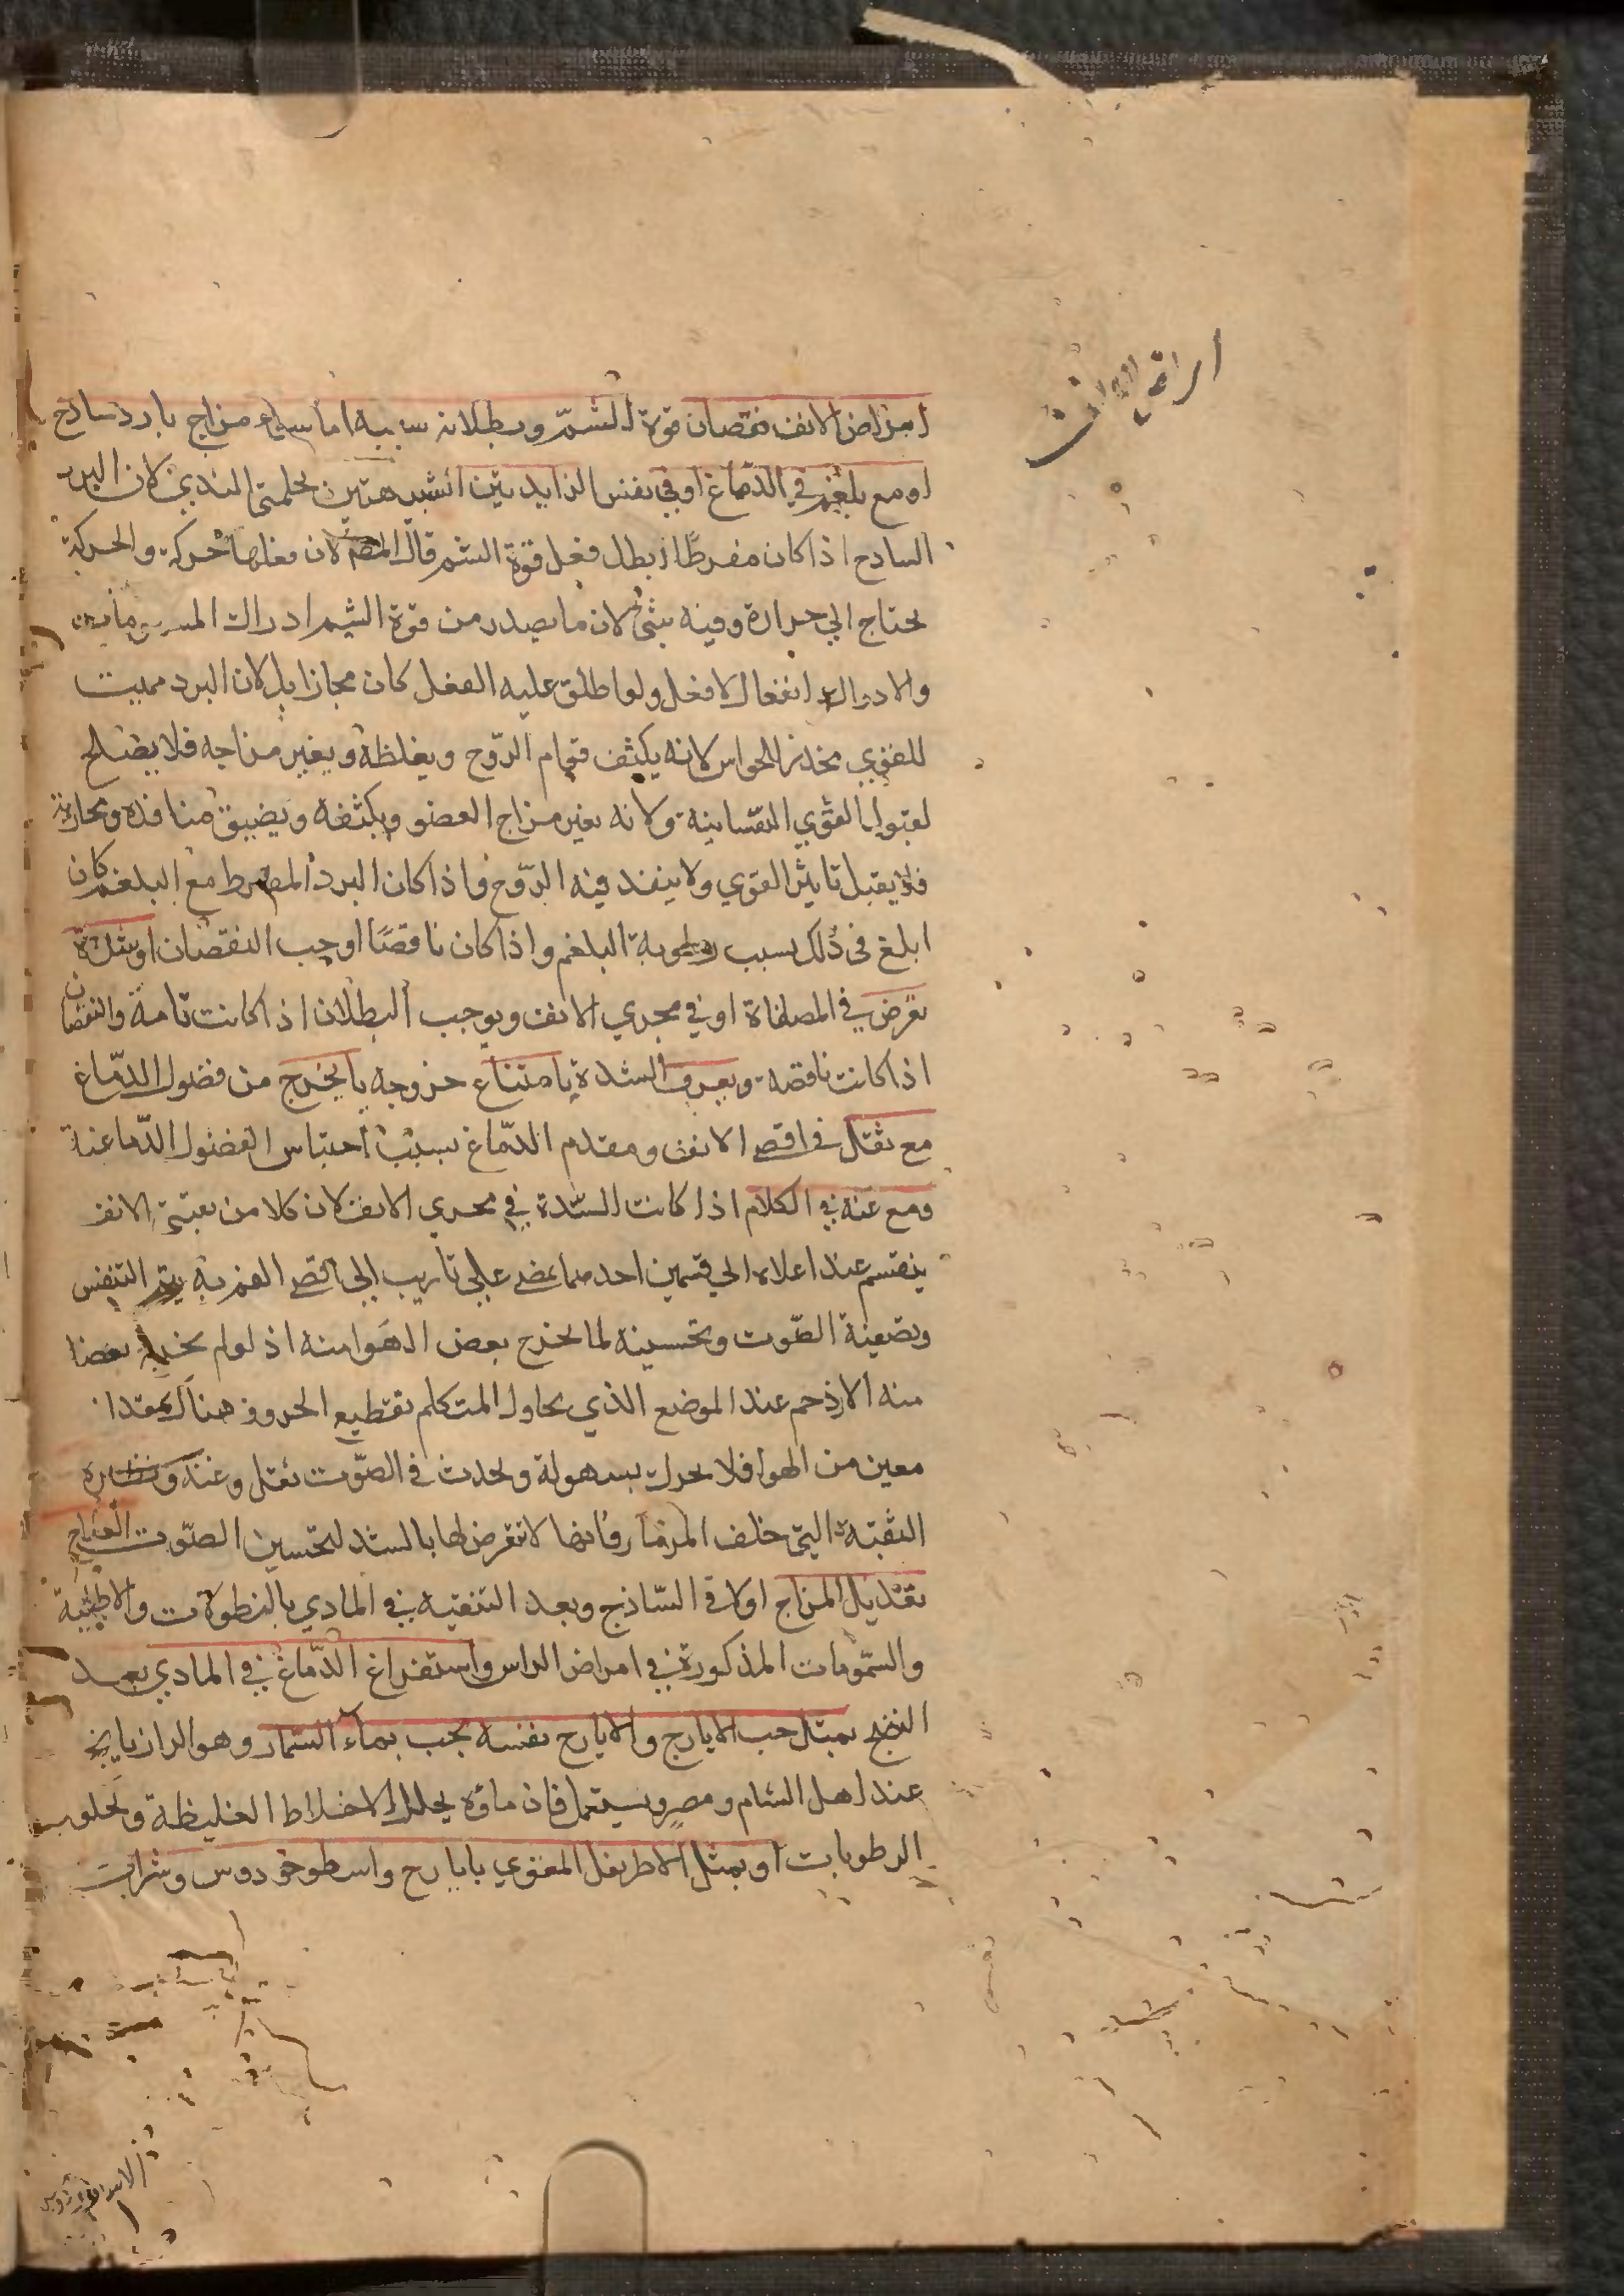 امراض الانف
امراض الانف نقصان قوة الشمّ وبطلانه سببه اما سوء مزاج بارد ساذج
او مع بلغم في الدماغ او في نفس الزايدتين الشبيهتين بحلمتي الثدي لان البرد
السادج اذا كان مفرطًا ابطل فعل قوة الشم قال المص لان فعلها حركة والحركة
يحتاج الي حرارة وفيه شئ لان ما يصدر من قوة الشم ادراك
والادراك انفعال لا فعل ولو اطلق عليه الفعل كان مجازا بل لان البرد مميت
للقوي مخدر الحواس لانه يكثف قوام الرّوح ويغلظه ويغير مزاجه فلا يصلح
لقبول القوي النفسانية ولانه يغير مزاج العضو ويكثفه ويضيق منافذه ومجاريه
فلا يقبل تاثير القوي ولا ينفذ فيه الرّوح فاذا كان البرد المفرط مع البلغم كان
ابلغ في ذلك بسبب رطوبة البلغم واذا كان ناقصًا اوجب النقصان او سدة
تعرض في المصفاة او في مجري الانف ويوجب البطلان اذا كانت تامة والنقصان
اذا كانت ناقصة ويعرف السدة بامتناع خروجه ما يخرج من فضول الدّماغ
مع ثقل في اقصي الانف ومقدم الدّماغ بسبب احتباس الفضول الدّماغية
ومع غنة في الكلام اذا كانت السّدة في مجري الانف لان كلا من ثقبتي الانف
ينقسم عند اعلاه الي قسمين احدهما يمضي علي تاريب الي اقصي الفم به يتم التنفس
وتصفية الصّوت وتحسينه لما يخرج بعض الهوا منه اذ لو لم يخرج بعضا
منه الازدحم عند الموضع الذي يحاول المتكلم تقطيع الحروف هناك بمقدار
معين من الهوا فلا يحرك بسهولة ويحدث في الصّوت ثقل وغنة ونظيره
الثقبة التي خلف المزمار فانها لا تعرض لها بالسد لتحسين الصّوت العلاج
تعديل المزاج اولا في السّاذج وبعد التنقية في المادي بالنطولات والاطلية
والشمومات المذكورة في امراض الراس واستفراغ الدّماغ في المادي بعد
النضج بمثل حب الايارج والايارج نفسه يحبب بماء الشمار وهو الرازيانج
عند اهل الشام ومصر ويستعمل فان ماؤه يحلل الاخلاط الغليظة ويجلو
الرطوبات او بمثل الاطريفل المقوي بايارج واسطوخودوس وشراب